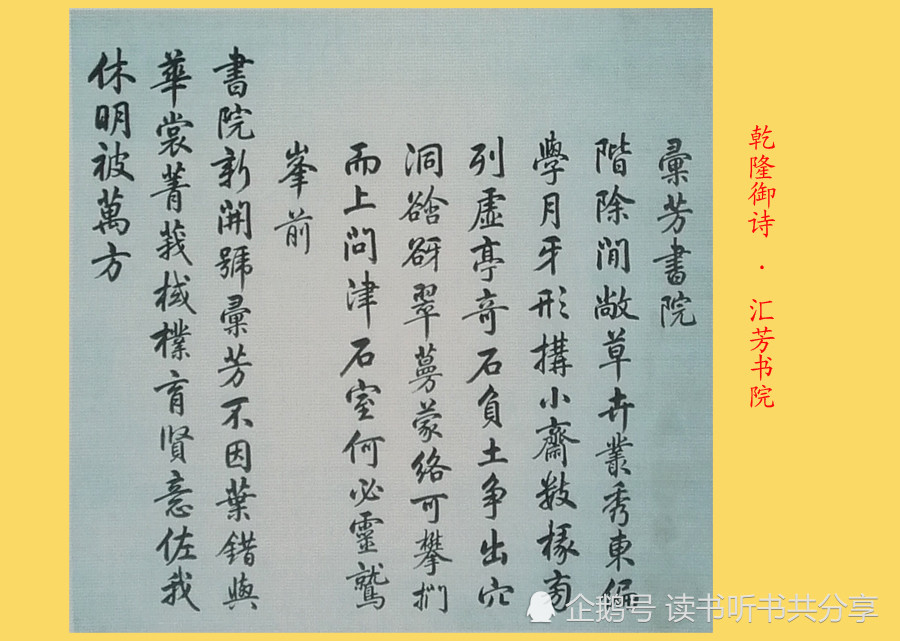 乾隆御诗 · 汇芳书院
彚芳書院
階除閒敞草卉叢秀東偏
學月牙形搆小齋數椽旁
列虛亭竒石負土争出穴
洞谽谺翠蔓蒙絡可攀捫
而上問津石室何必靈鷲
峯前
書院新開號彚芳不因葉錯與
華裳菁莪棫樸育賢意佐我
休明被萬方
企鹅号 读书听书共分享